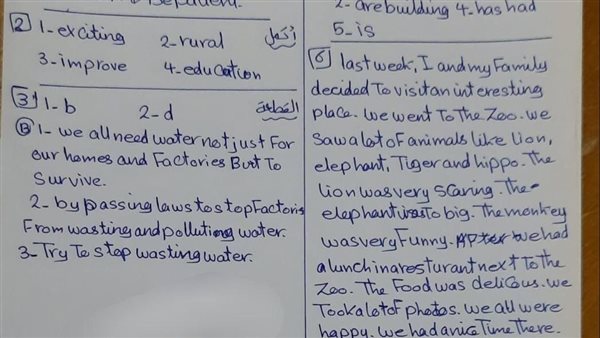 2 1- exciting 2- rural أكمل
3- improve 4- education
3 1- b 2- d القطعة
B 1- we all need water not just For
our homes and Factories But To
Survive.
2- by passing laws to stop Factories
From wasting and polluting water.
3- Try To stop wasting water.
2- are building 4- has had
5- is
6 last week, I and my Family
decided To visit an interesting
place. we went To The Zoo. we
Saw a lot oF animals like lion,
elephant, Tiger and hippo. The
lion was very scaring. The
elephant was To big. The monkey
was very Funny. After we had
a lunch in a resturant next To The
Zoo. The Food was delicous. we
Took a lot oF photos. we all were
happy. we had a nice Time There.